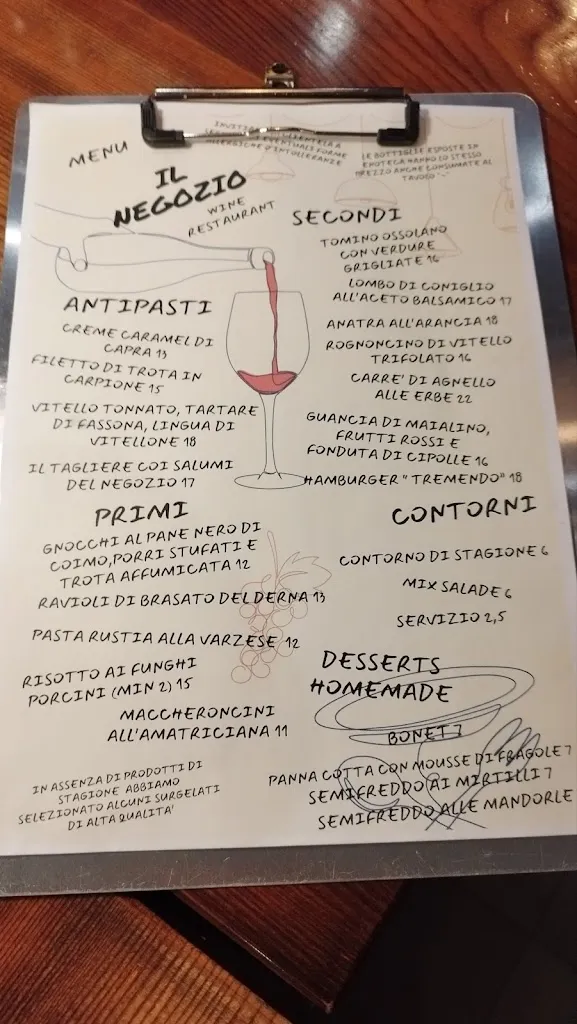 MENU
IL
NEGOZIO
WINE
RESTAURANT
INVITIAMO LA CLIENTELA A
EVENTUALI FORME
ALLERGICHE O INTOLLERANZE
LE BOTTIGLIE ESPOSTE IN
ENOTECA HANNO LO STESSO
PREZZO ANCHE CONSUMATE AL
TAVOLO
ANTIPASTI
CREME CARAMEL DI
CAPRA 13
FILETTO DI TROTA IN
CARPIONE 15
VITELLO TONNATO, TARTARE
DI FASSONA, LINGUA DI
VITELLONE 18
IL TAGLIERE COI SALUMI
DEL NEGOZIO 17
PRIMI
GNOCCHI AL PANE NERO DI
COIMO, PORRI STUFATI E
TROTA AFFUMICATA 12
RAVIOLI DI BRASATO DEL DERNA 13
PASTA RUSTIA ALLA VARZESE 12
RISOTTO AI FUNGHI
PORCINI (MIN 2) 15
MACCHERONCINI
ALL'AMATRICIANA 11
IN ASSENZA DI PRODOTTI DI
STAGIONE ABBIAMO
SELEZIONATO ALCUNI SURGELATI
DI ALTA QUALITA'
SECONDI
TOMINO OSSOLANO
CON VERDURE
GRIGLIATE 16
LOMBO DI CONIGLIO
ALL'ACETO BALSAMICO 17
ANATRA ALL'ARANCIA 18
ROGNONCINO DI VITELLO
TRIFOLATO 16
CARRE' DI AGNELLO
ALLE ERBE 22
GUANCIA DI MAIALINO,
FRUTTI ROSSI E
FONDUTA DI CIPOLLE 16
HAMBURGER "TREMENDO" 18
CONTORNI
CONTORNO DI STAGIONE 6
MIX SALADE 6
SERVIZIO 2,5
DESSERTS
HOMEMADE
BONET 7
PANNA COTTA CON MOUSSE DI FRAGOLE 7
SEMIFREDDO AI MIRTILLI 7
SEMIFREDDO ALLE MANDORLE